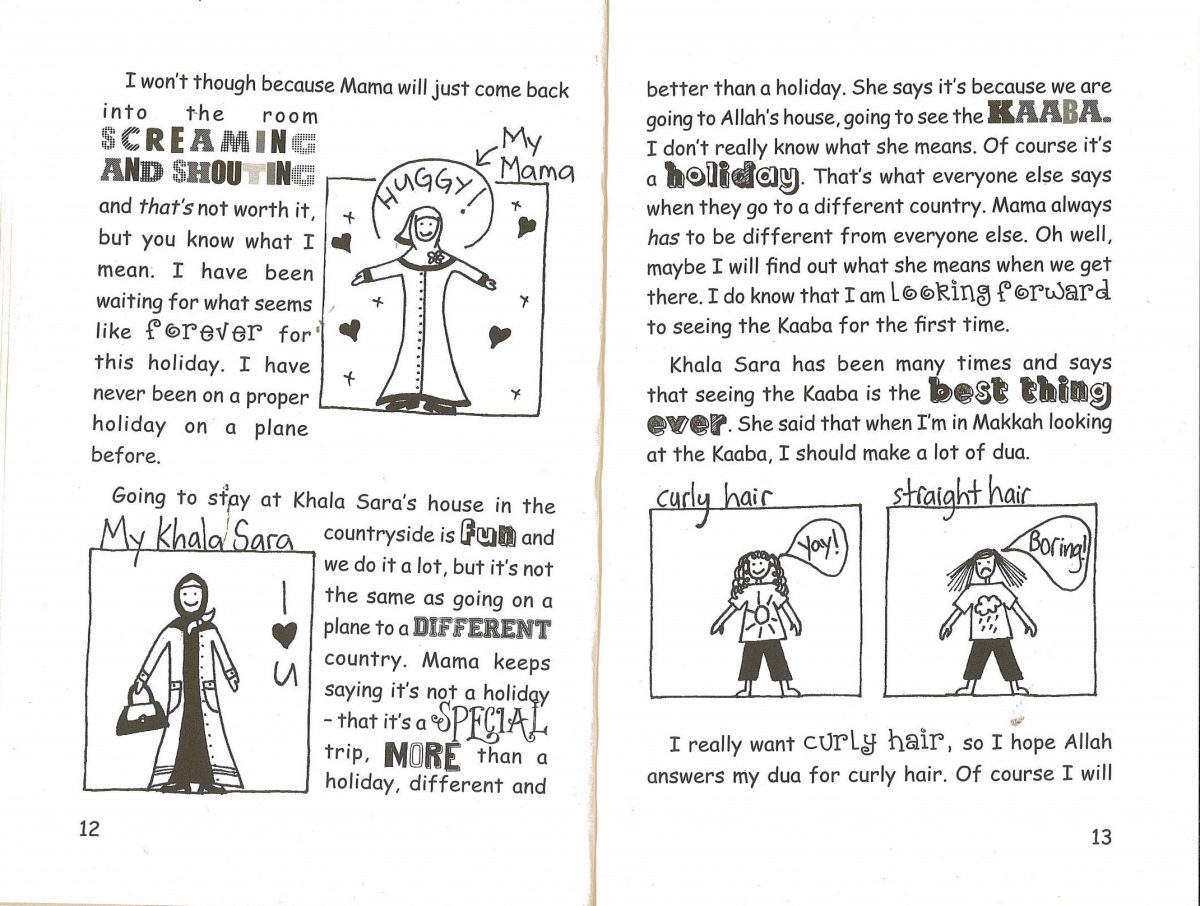 I won't though because Mama will just come back
into the room
SCREAMING
AND SHOUTING
and that's not worth it,
but you know what I
mean. I have been
waiting for what seems
like forever for
this holiday. I have
never been on a proper
holiday on a plane
before.
My
Mama
HUGGY!
Going to stay at Khala Sara's house in the
My Khala Sara
I
♥
U
countryside is fun and
we do it a lot, but it's not
the same as going on a
plane to a DIFFERENT
country. Mama keeps
saying it's not a holiday
– that it's a SPECIAL
trip, MORE than a
holiday, different and
12
better than a holiday. She says it's because we are
going to Allah's house, going to see the KAABA.
I don't really know what she means. Of course it's
a holiday. That's what everyone else says
when they go to a different country. Mama always
has to be different from everyone else. Oh well,
maybe I will find out what she means when we get
there. I do know that I am looking forward
to seeing the Kaaba for the first time.
Khala Sara has been many times and says
that seeing the Kaaba is the best thing
ever. She said that when I'm in Makkah looking
at the Kaaba, I should make a lot of dua.
curly hair
Yay!
straight hair
Boring!
I really want curly hair, so I hope Allah
answers my dua for curly hair. Of course I will
13